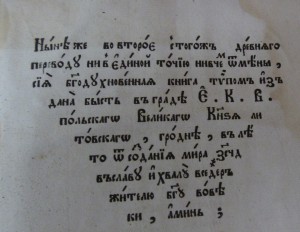 Ны́нѣ же во второ́е стого́жъ дре́вняго
перево́ду ни в є҆ди́ной то́чїю ни въ чеⷨ ѿмѣ́ни,
сїѧ̀ бг҃одухнове́нная книга ту́помъ и҆зъ
дана̀ бы́сть въ гра́дѣ Е҆. К. В.
по́льскагѡ Вели́кагѡ Кнѧ҃зя ли
то́вскагѡ, гро́днѣ, в лѣ́
то ѿ со́ꙁда́нїя ми́ра
въ сла́ву и҆ хвалꙋ̀ все
жи́телю бг҃ꙋ во вѣ́
ки, а҆ми́нь;